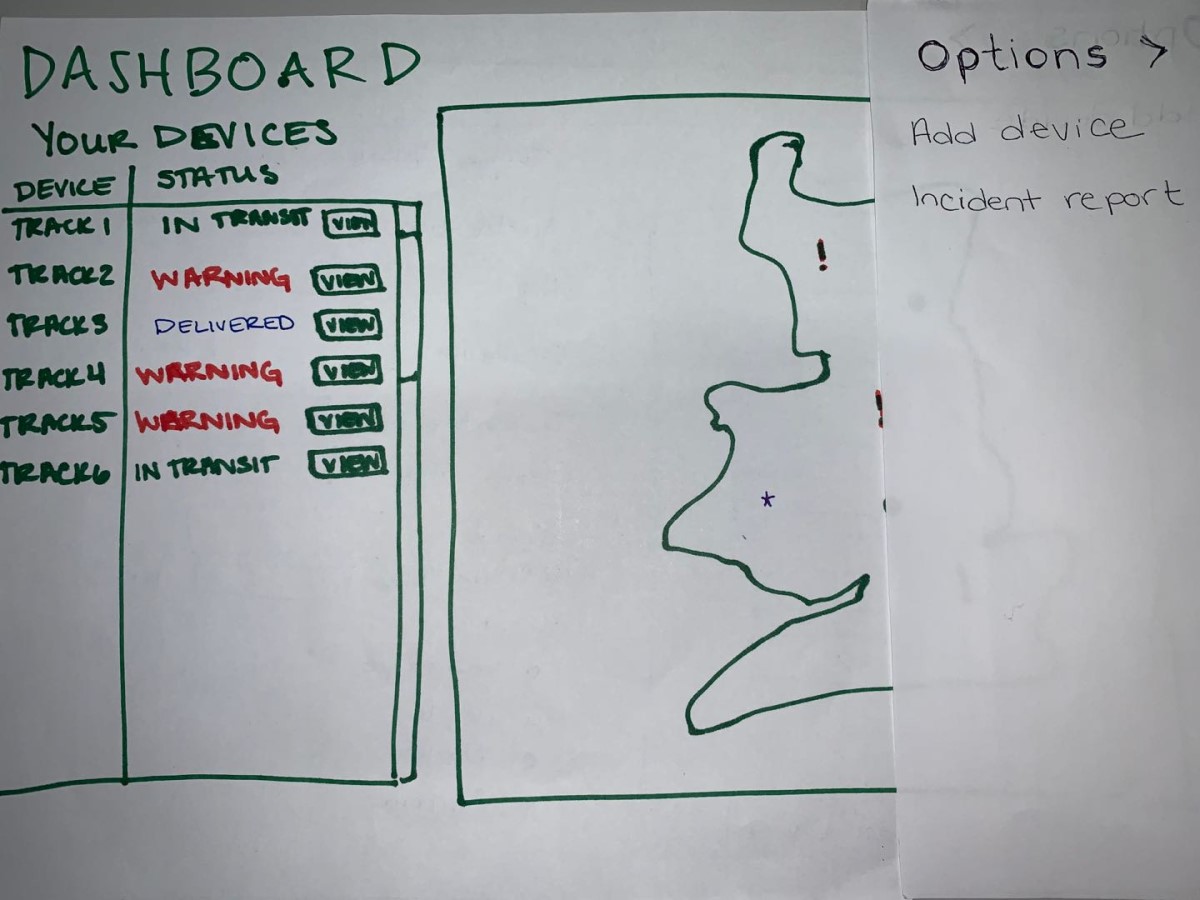 DASHBOARD
YOUR DEVICES
DEVICE STATUS
TRACK 1 IN TRANSIT VIEW
TRACK2 WARNING VIEW
TRACK3 DELIVERED VIEW
TRACK4 WARNING VIEW
TRACK5 WARNING VIEW
TRACK6 IN TRANSIT VIEW
!
!
*
Options >
Add device
Incident report